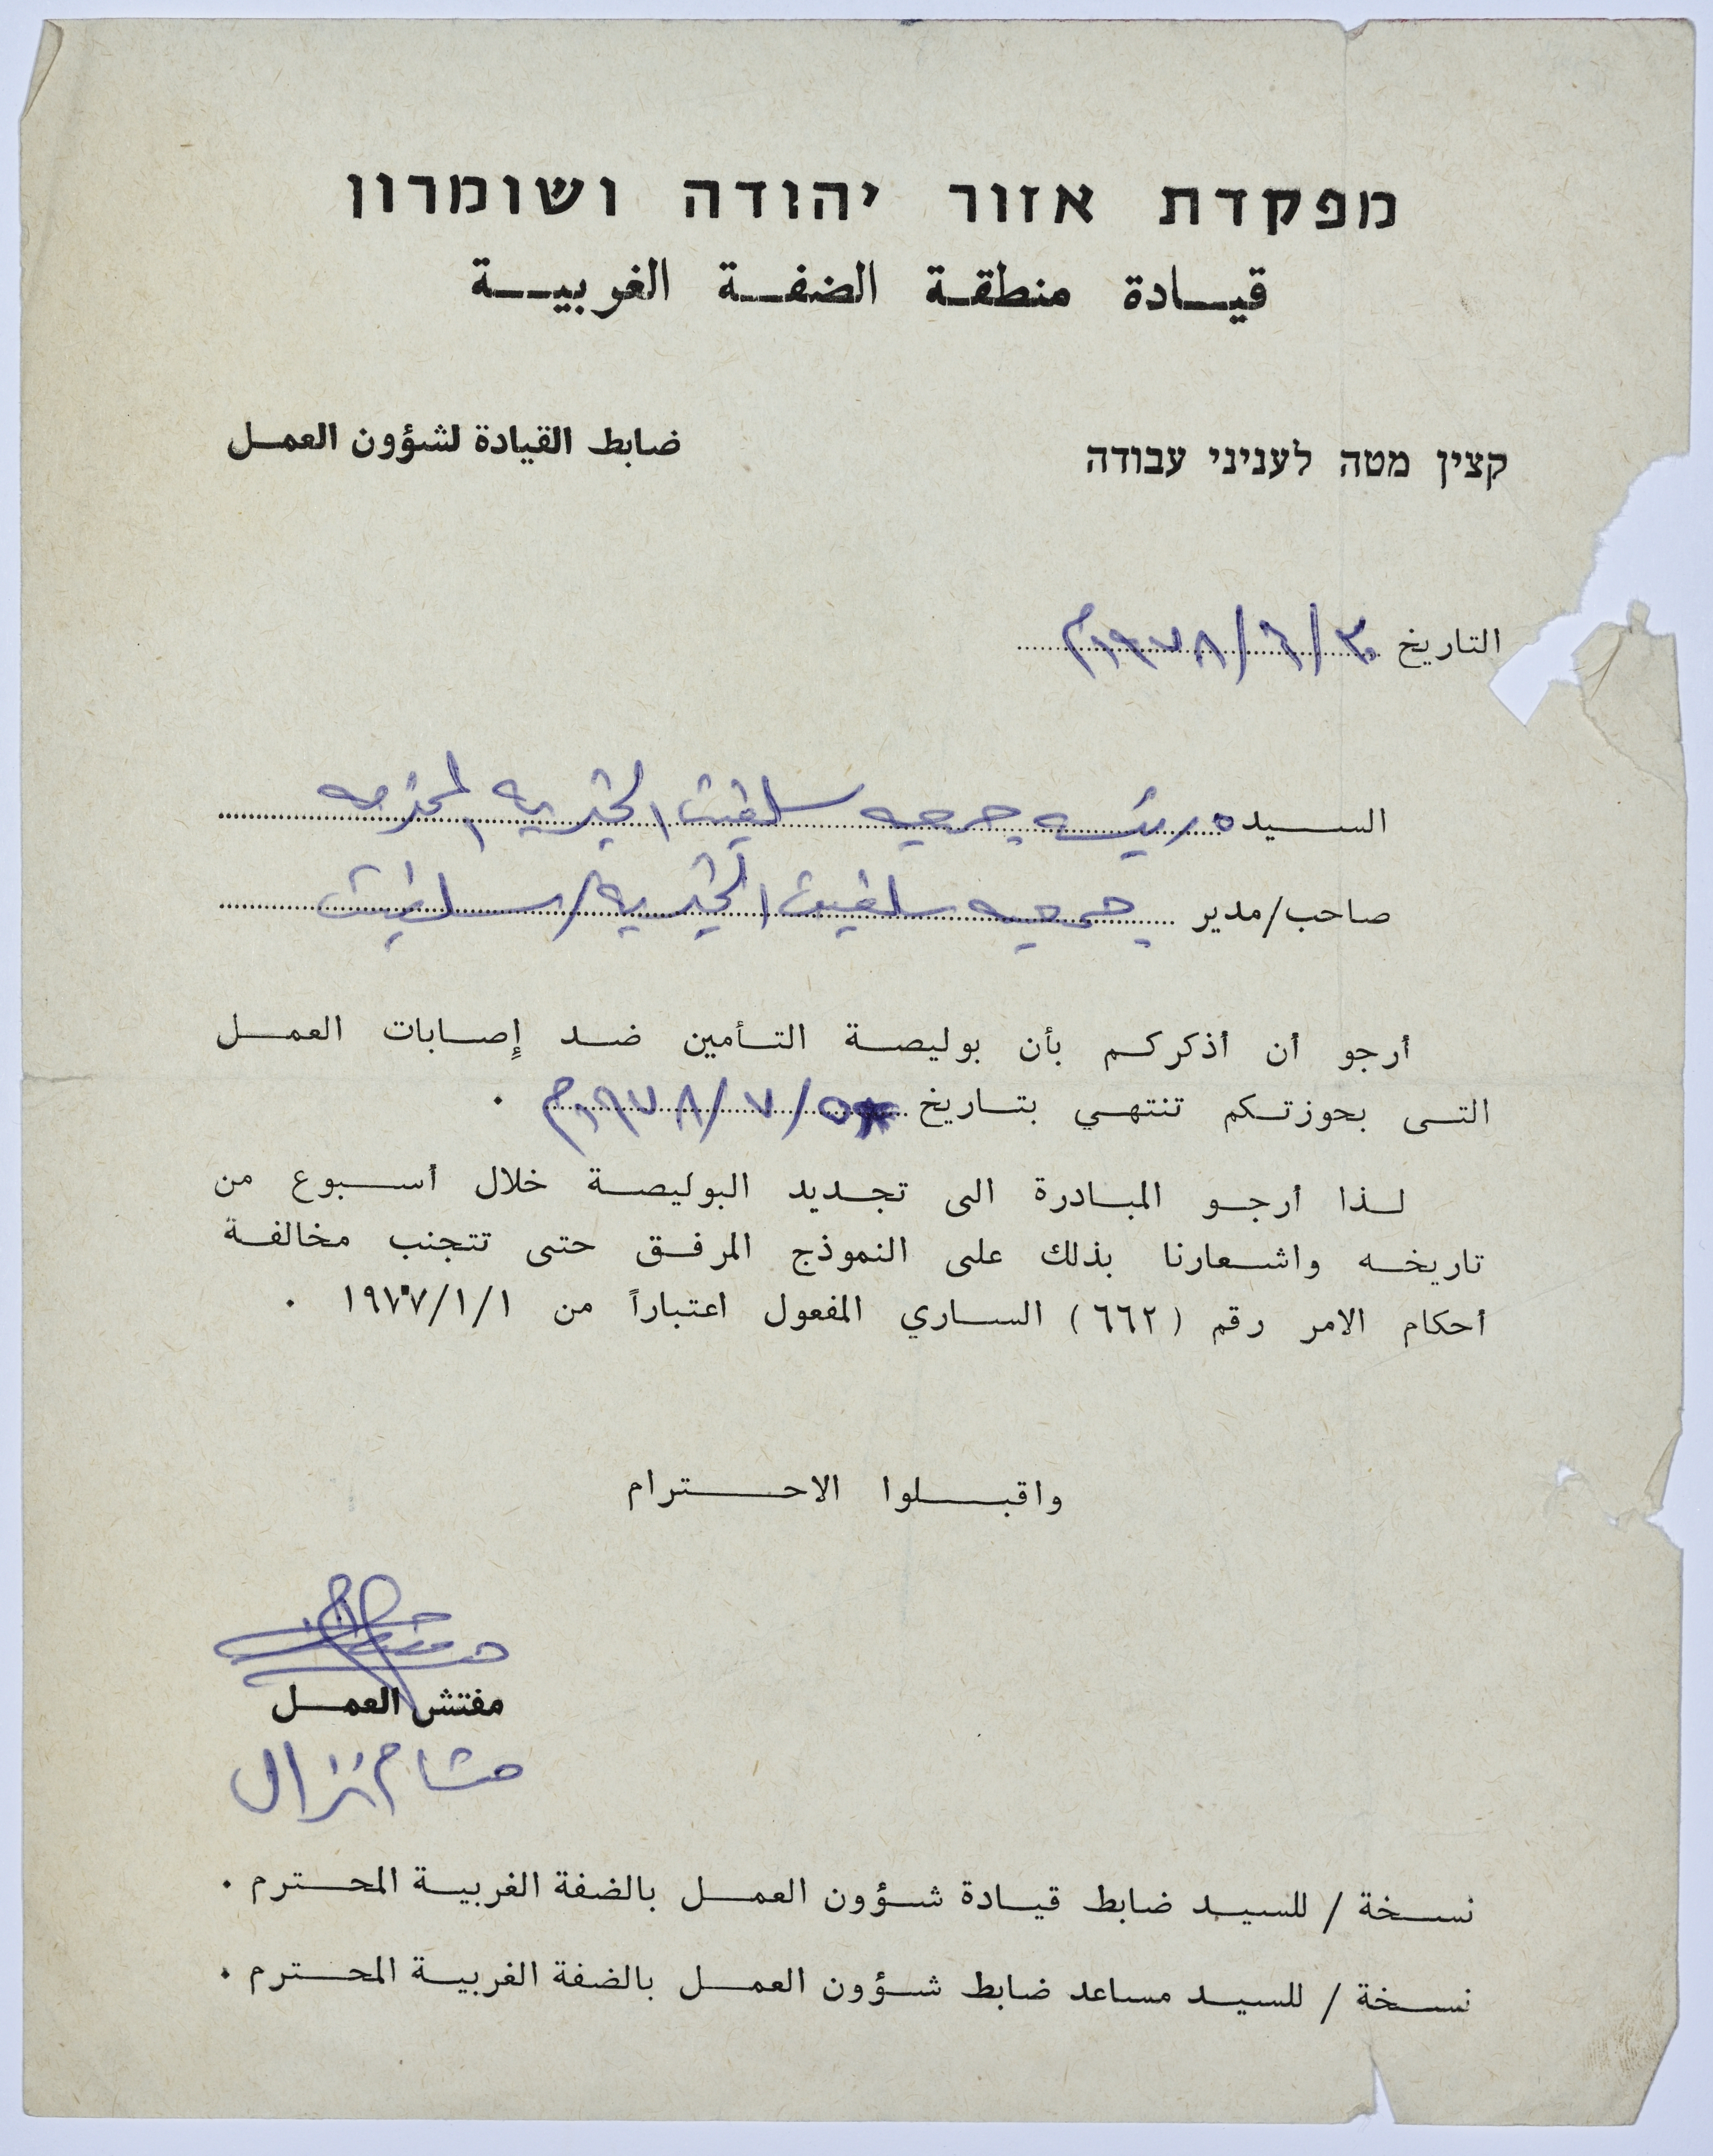 מפקדת אזור יהודה ושומרון
قيادة منطقة الضفة الغربية
קצין מטה לעניני עבודה
ضابط القيادة لشؤون العمل
التاريخ ٣٠/٦/١٩٧٨م
السيده رئيسه جمعيه سلفيت الخيريه المحترمه
صاحب/مدير جمعيه سلفيت الخيريه/سلفيت
أرجو أن أذكركم بأن بوليصة التأمين ضد إصابات العمل
التى بحوزتكم تنتهي بتاريخ ٥/٧/١٩٧٨م .
لذا أرجو المبادرة الى تجديد البوليصة خلال أسبوع من
تاريخه واشعارنا بذلك على النموذج المرفق حتى تتجنب مخالفة
أحكام الامر رقم (٦٦٢) الساري المفعول اعتباراً من ١٩٧٧/١/١ .
واقبلوا الاحترام
مفتش العمل
هشام نزال
نسخة / للسيد ضابط قيادة شؤون العمل بالضفة الغربية المحترم .
نسخة / للسيد مساعد ضابط شؤون العمل بالضفة الغربية المحترم .